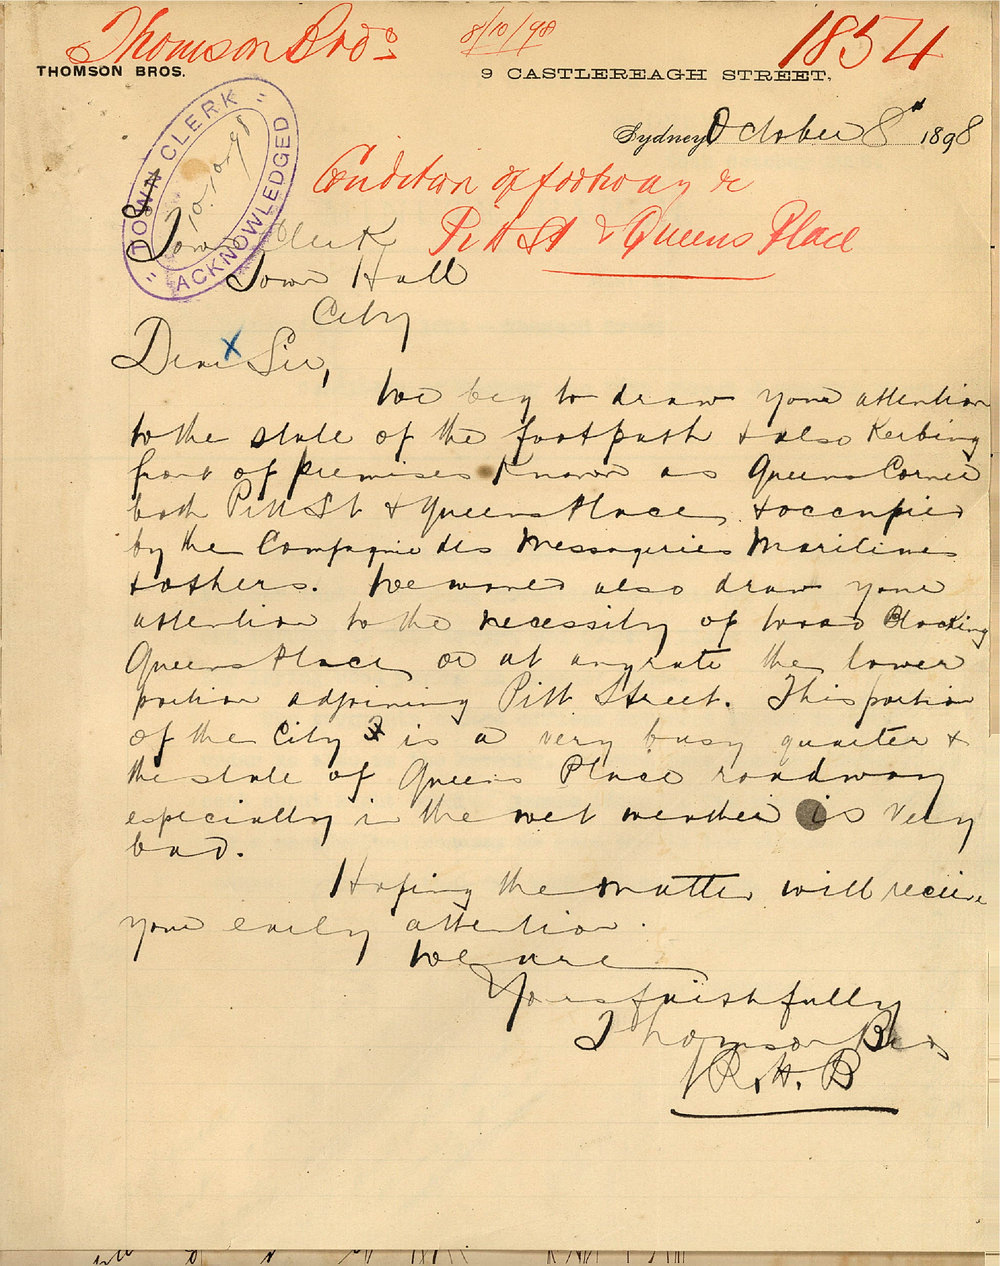 Thomson Bros
8/10/98
1854
THOMSON BROS.
9 CASTLEREAGH STREET,
Sydney October 8th 1898
TOWN CLERK
10.10.98
ACKNOWLEDGED
Condition of footway &c
Pitt St & Queens Place
The
Town Clerk
Town Hall
City
Dear Sir,
We beg to draw your attention
to the state of the footpath & also Kerbing
front of premises Known as Queens Corner
both Pitt St & Queens Place, & occupied
by the Compagnie des Messageries Maritimes
& others. We would also draw your
attention to the necessity of wood Blocking
Queens Place, or at any rate the lower
portion adjoining Pitt Street. This portion
of the City is a very busy quarter &
the state of Queens Place roadway
especially in the wet weather is very
bad.
Hoping the matter will receive
your early attention.
We are
Yours faithfully
Thomson Bros
R. H. B